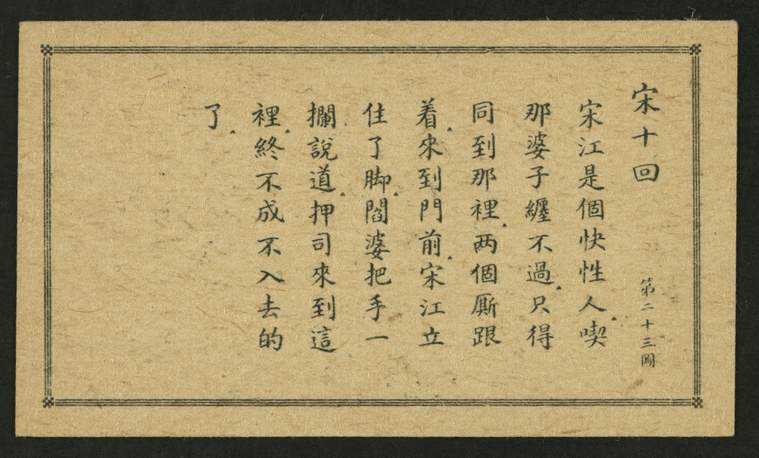 宋十回
第二十三圖
宋江是個快性人.喫
那婆子纏不過.只得
同到那裡.两個厮跟
着.來到門前.宋江立
住了脚.閻婆把手一
攔說道.押司來到這
裡.終不成不入去的
了.